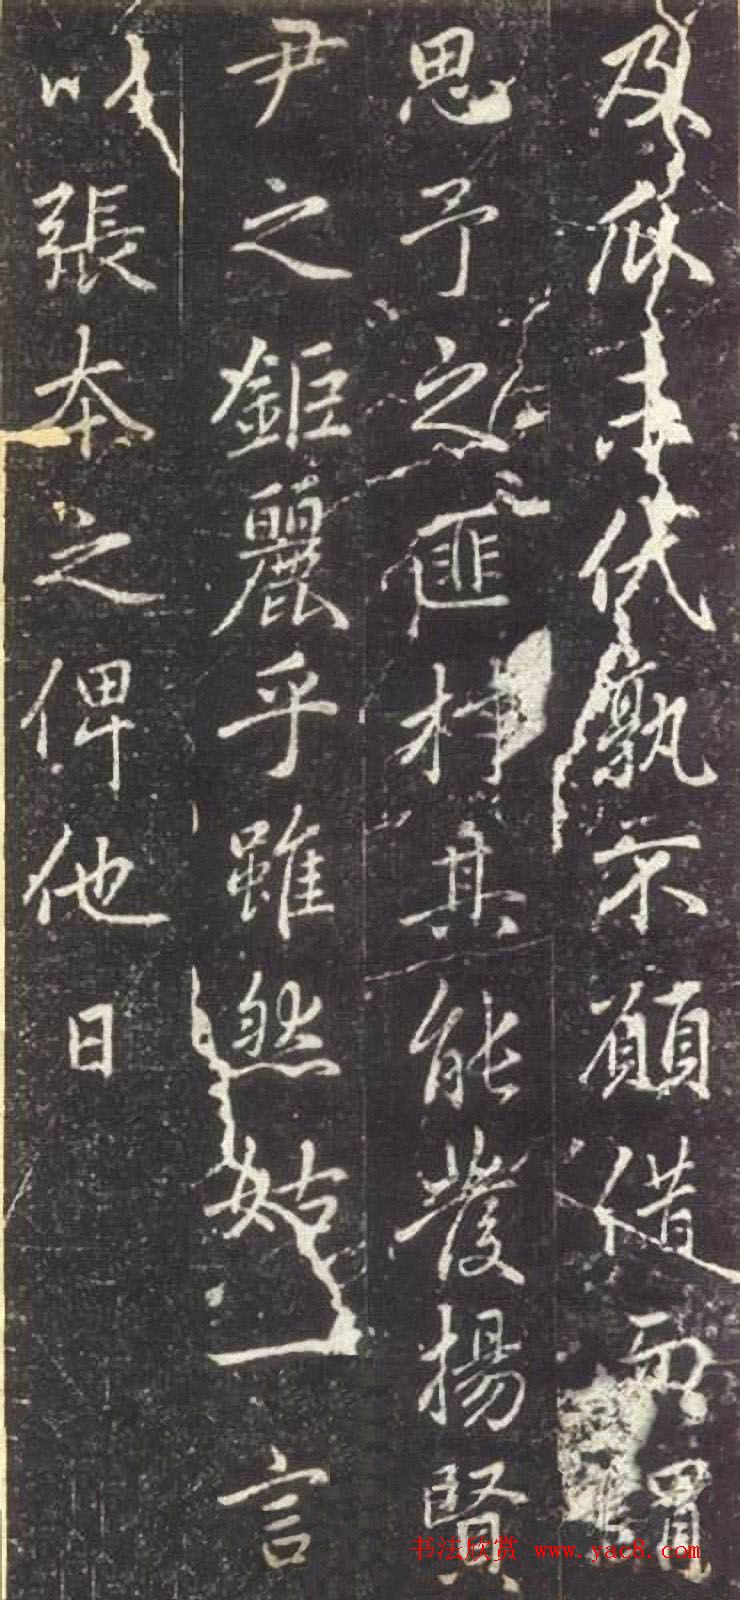 及瓜未代孰不願借而謂
思予之匪材其能發揚賢
尹之鉅麗乎雖然姑一言
以張本之俾他日
书法欣赏 www.yac8.com